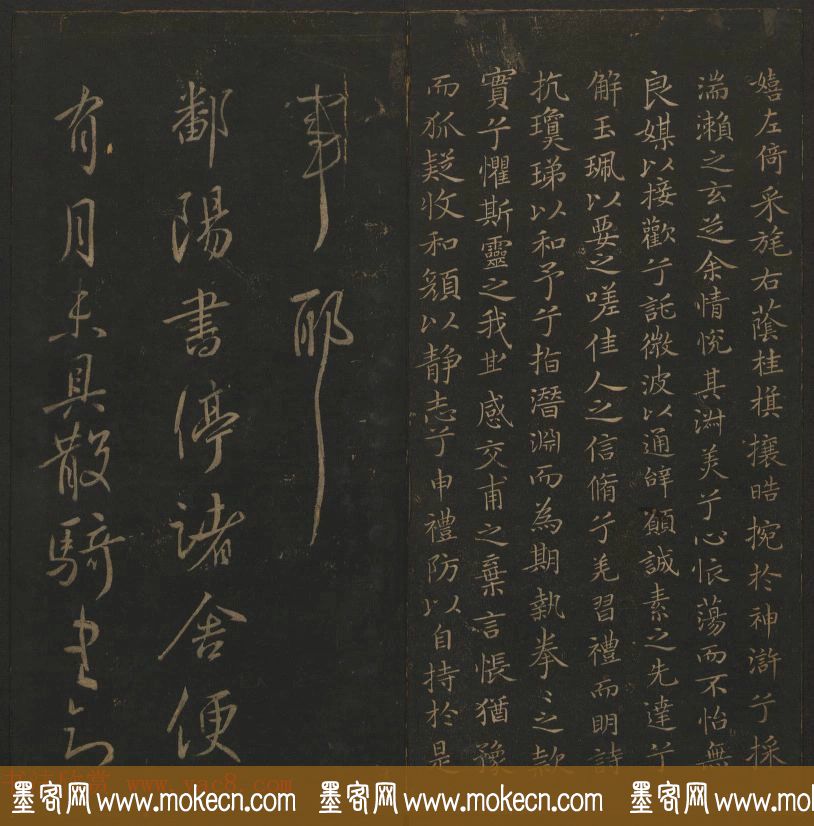 嬉左倚采旄右蔭桂旗攘皓捥於神滸兮採
湍瀨之玄芝余情悅其淑美兮心悵蕩而不怡無
良媒以接歡兮託微波以通辭願誠素之先達兮
解玉珮以要之嗟佳人之信脩兮羌習禮而明詩
抗瓊珶以和予兮指潛淵而為期執拳〻之款
實兮懼斯靈之我欺感交甫之棄言悵猶豫
而狐疑收和顏以靜志兮申禮防以自持於是
事耶
鄱陽書停諸舍便
有月未具散騎書
墨客网www.mokecn.com 墨客网www.mokecn.com 墨客网www.mokecn.com